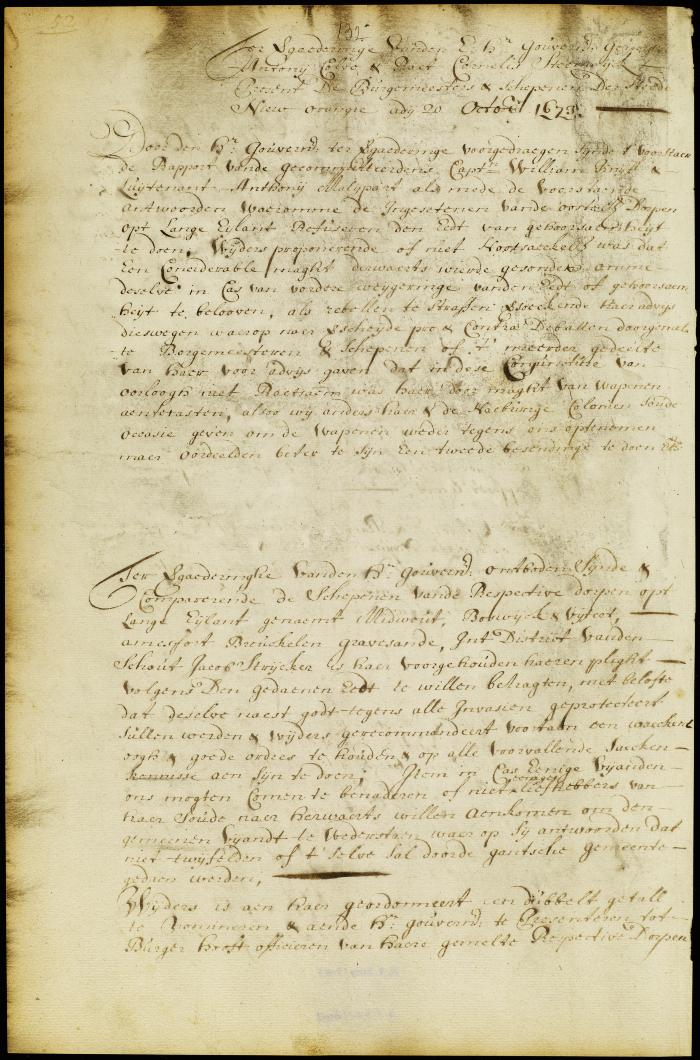 52
132
Ter Vgaederinge Vanden E. Hr. Gouvernr. Genl
Antony Colve & Raet Cornelis Steenwyck
Present De Burgemeesters & Schepenen Der Stede
Niew orangie ady 20 Octobr 1673.
Door den Hr. Gouvernr. ter Vgaederinge voorgedraegen synde t'
de Rapport vande gecommitteerdens Captn. William Knyff &
Luytenant Anthony Malypart als mede de
antwoorden Waeromme de Ingesetenen vande Dorpen
opt Lange Eylant Refuseren den Eedt van gehoorsaemheyt
te doen, Wyders proponerende of niet Nootsaeckel: was dat
Een Considerable maght derwaerts wierde gesonden omme
deselve in Cas van vordere weygeringe vanden Eedt of gehoorsaem
heyt te belooven, als rebellen te straffen haer advys
dieswegen waerop naer pro & Contra Debatten
te Borgemeesteren & Schepenen of t' meerder gedeelte
van haer voor advys gaven dat in dese Conjunctuere van
oorlogh niet Raetsaem was haer door maght van wapenen
aentetasten, alsoo wy anders haer & de Naeburige Colonien Soude
occasie geven om de Wapenen weder tegens ons optenemen
maer oordeelden beter te syn Een tweede besendinge te doen
Ter Vgaederinghe Vanden Hr. gouvernr. ontboden Synde &
Comparerende de Schepenen vande Respective dorpen opt
Lange Eylant genaemt Midwout, Boswyck & uytrct,
amesfort Breuckelen gravesande, Int District vanden
Schout Jacob Strycker is haer voorgehouden haeren plight
volgens Den gedaenen Eedt te willen betragten, met belofte
dat deselve naest godt tegens alle Invasien geprotecteert
Sullen werden & Wyders gerecommandeert voortaen een waeckent
oogh & goede ordres te houden & op alle voorvallende Saecken
kennisse aen Syn te doen; Item in Cas Eenige vyanden
ons mogten Comen te benaderen of niet Liefhebbers van
haer Soude naer herwaerts willen aenkomen om den
gemeenen vyandt te Wederstaen waer op Sy antwoorden dat
niet twyfelden of t' selve sal doorde gantsche gemeente
gedaen werden,
Wyders is aen haer geordonneert een dubbelt getall
te Nomineren & aende Hr. gouvernr. te Presenteren tot
Burger Krefts officieren van haere gemelte Respective Dorpen